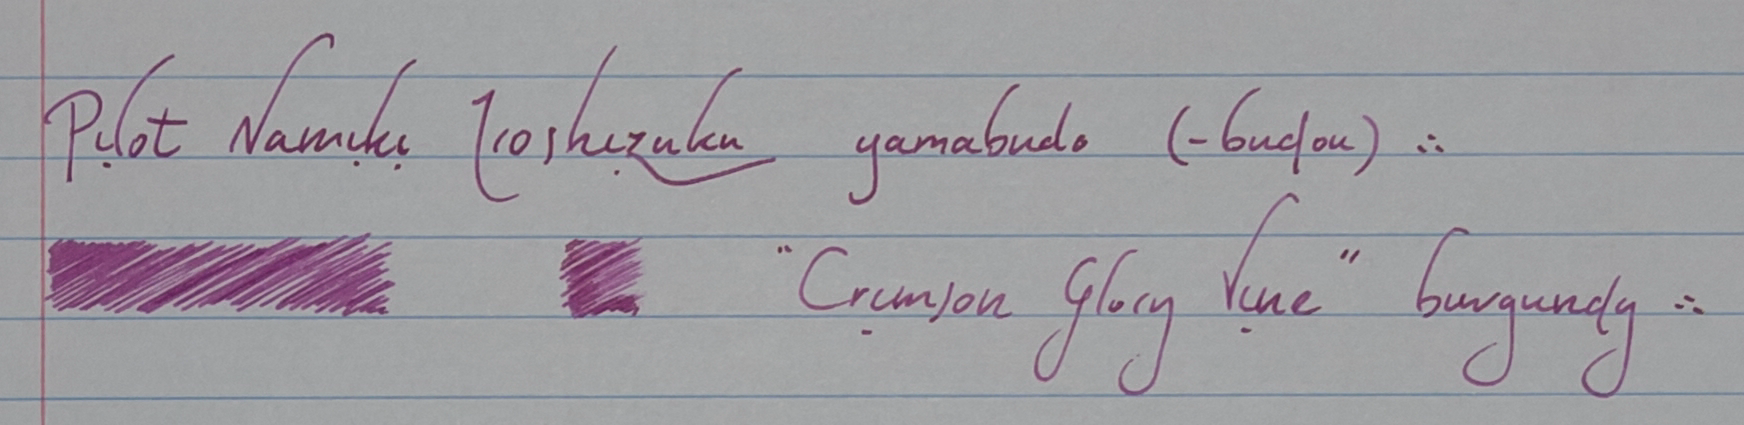 Pilot Namiki Iroshizuku yamabudo (-budou) ∴
"Crimson Glory Vine" burgundy ∴